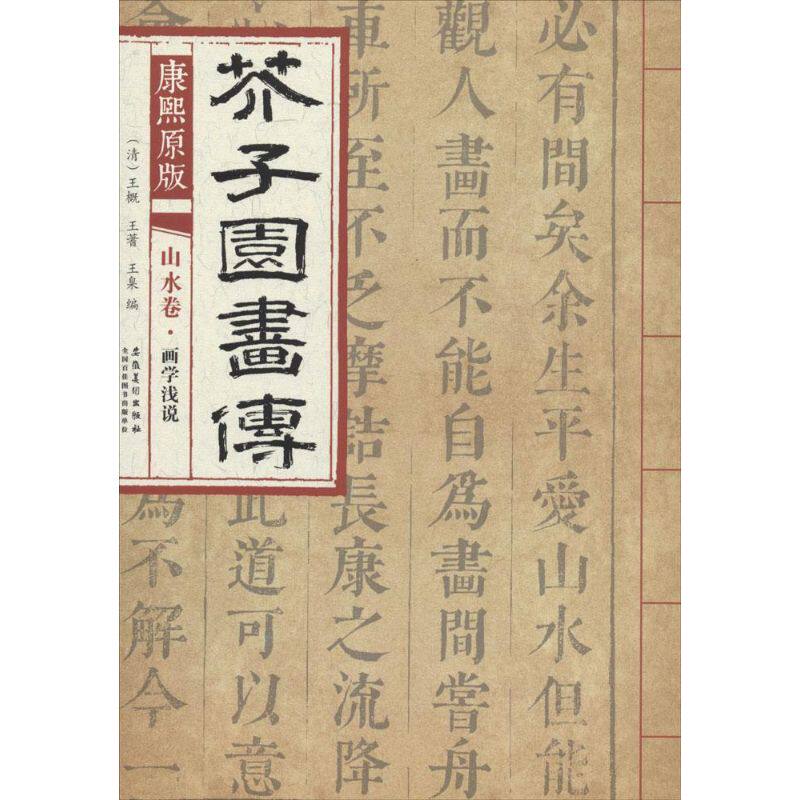 芥子園畫傳
康熙原版
山水卷·画学浅说
（清）王概 王蓍 王臬 编
安徽美術出版社
全国百佳图书出版单位
必有間矣余生平愛山水但能
觀人畫而不能自爲畫間嘗舟
車所至不乏摩詰長康之流降
此道可以意
爲不解今一